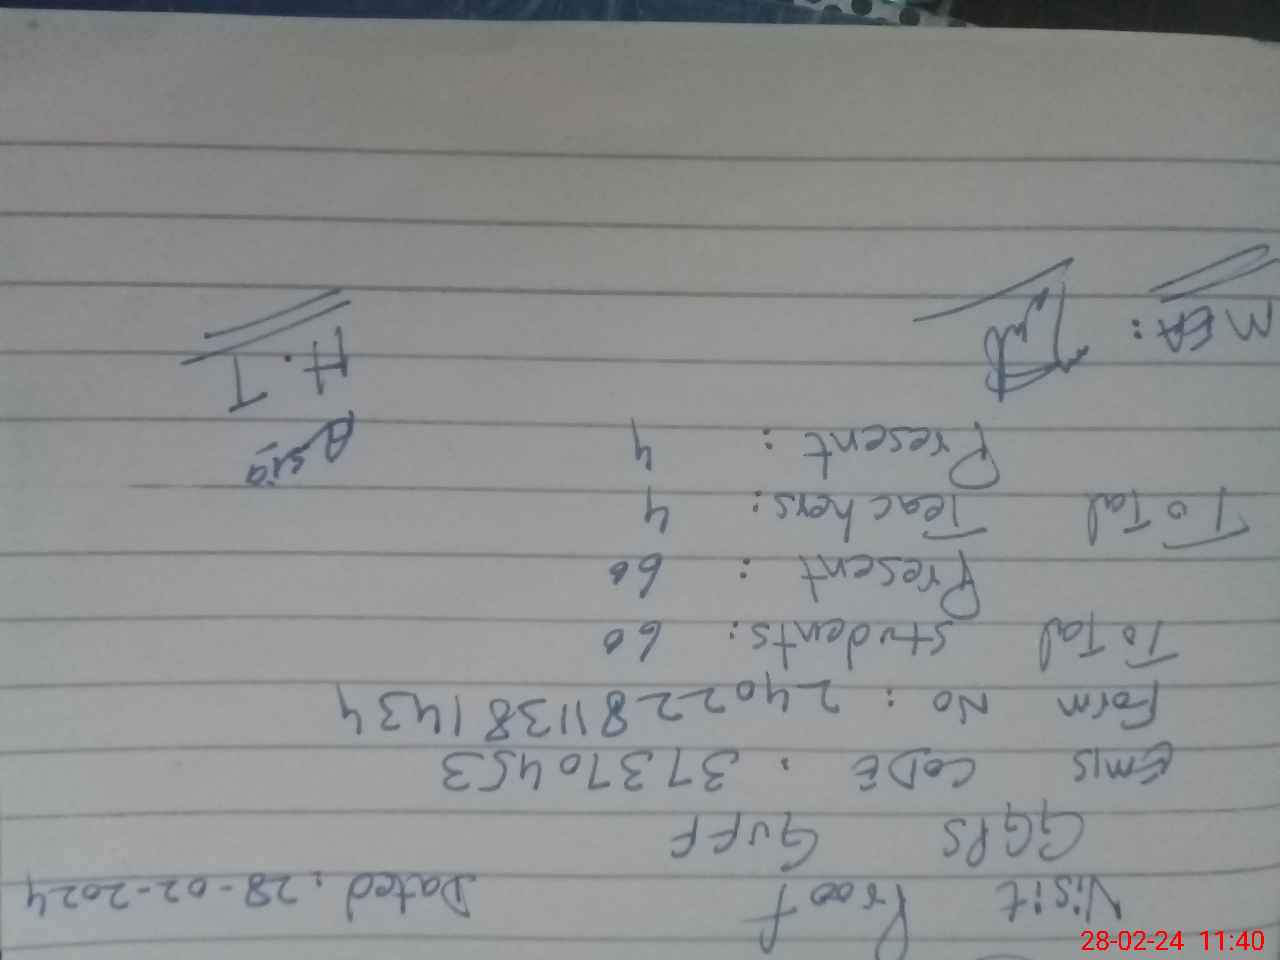 Visit Proof Dated: 28-02-2024
GGPS GUFF
Emis CODE : 37370453
Form No : 2402281138 1434
ToTal students: 60
Present : 60
ToTal Teachers: 4
Present : 4
Asia
MEA: H.T
28-02-24 11:40